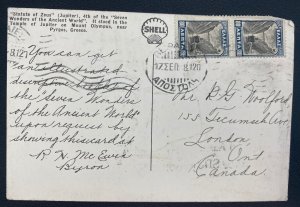 "Statute of Zeus" (Jupiter), 4th of the "Seven
Wonders of the Ancient World". It stood in the
Temple of Zeus on Mount Olympus, near
Pyrgos, Greece.
SHELL
You can get
an illustrated
description
of the Seven Wonders
of the Ancient World
upon request by
showing this card at
R H McEwen
Byron
12 ΣΕΠ
The B G Woolford
155 Tecumseh Ave
London,
Ont
Canada.